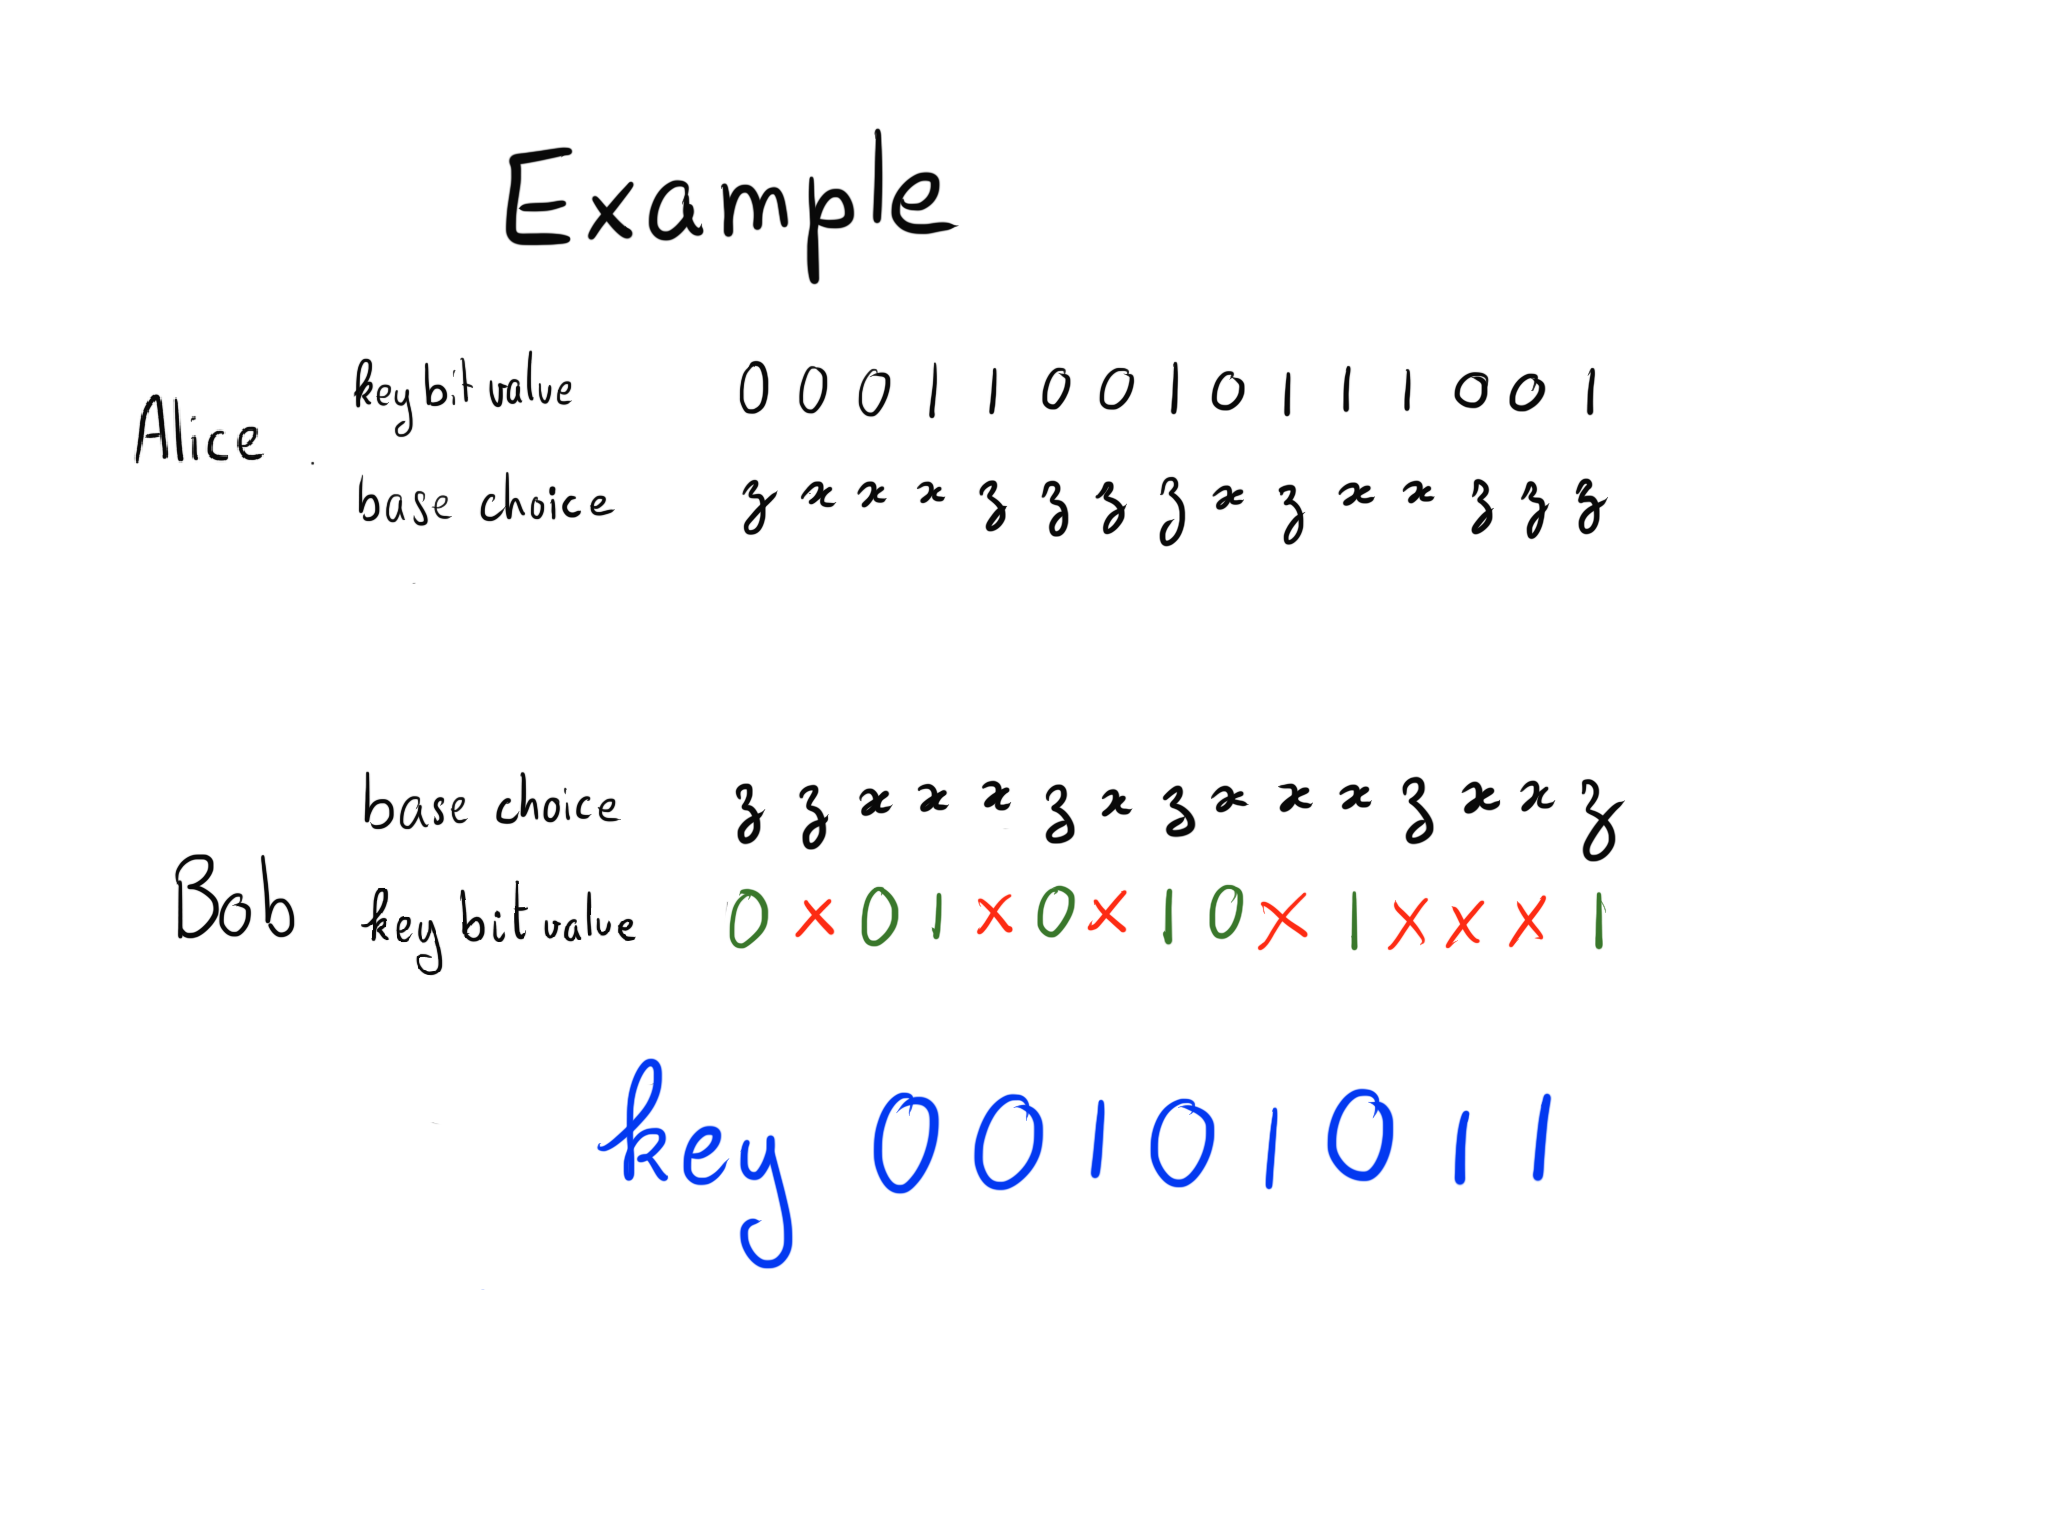 Example
Alice
key bit value 0 0 0 1 1 0 0 1 0 1 1 1 0 0 1
base choice z x x x z z z z x z x x z z z
base choice z z x x x z x z x x x z x x z
Bob
key bit value 0 x 0 1 x 0 x 1 0 x 1 x x x 1
key 0 0 1 0 1 0 1 1